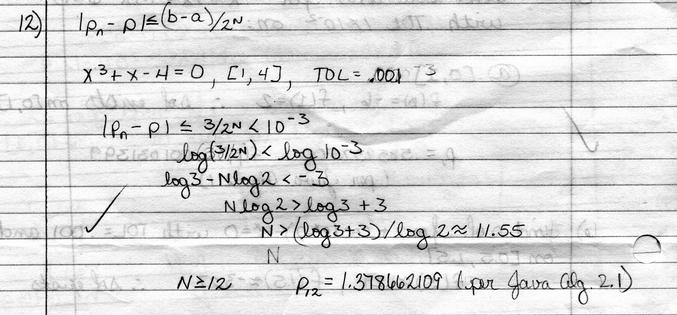 12) |pₙ - p| ≤ (b-a)/2ᴺ
x³ + x - 4 = 0, [1, 4], TOL = .001
|pₙ - p| ≤ 3/2ᴺ < 10⁻³
log(3/2ᴺ) < log 10⁻³
log3 - Nlog2 < -3
N log 2 > log 3 + 3
N > (log3+3)/log 2 ≈ 11.55
N
N ≥ 12 p₁₂ = 1.378662109 (per Java Alg. 2.1)